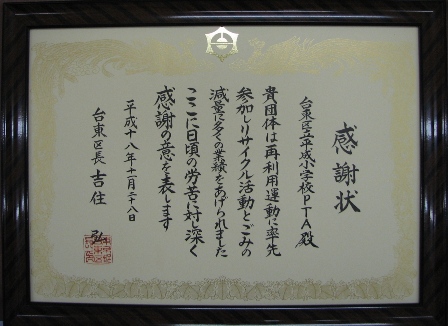 感謝状
台東区立平成小学校PTA殿
貴団体は再利用運動に率先
参加しリサイクル活動とごみの
減量に多くの業績をあげられました
ここに日頃の労苦に対し深く
感謝の意を表します
平成十八年十一月二十八日
台東区長 吉住 弘